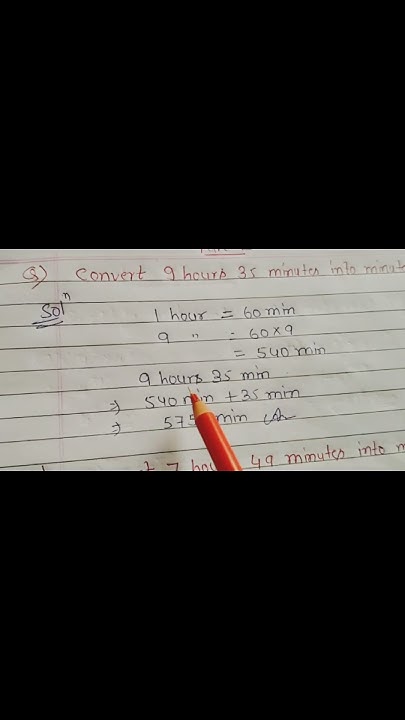 Q) Convert 9 hours 35 minutes into
Solⁿ
1 hour = 60 min
9 " = 60×9
= 540 min
9 hours 35 min
⇒ 540 min + 35 min
⇒ 575 min
7 49 minutes into